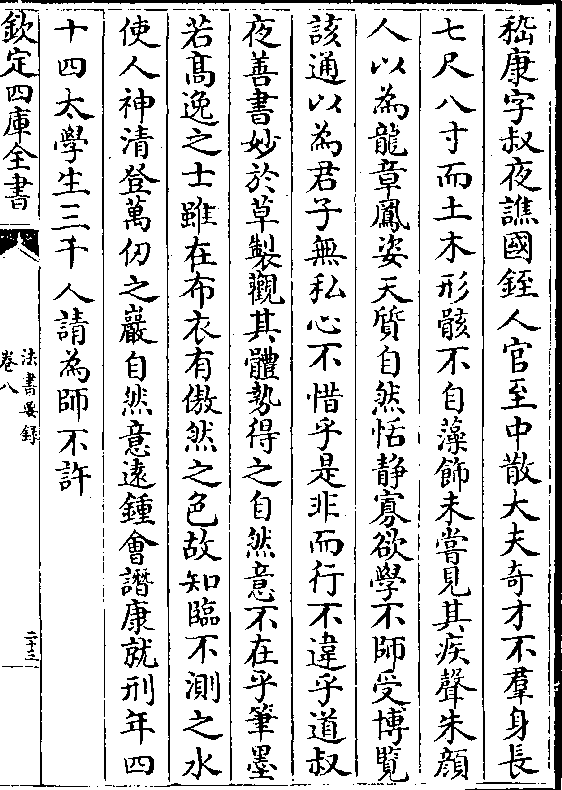 嵇康字叔夜譙國銍人官至中散大夫奇才不羣身長
七尺八寸而土木形骸不自藻飾未嘗見其疾聲朱顔
人以為龍章鳳姿天質自然恬静寡欲學不師受博覧
該通以為君子無私心不惜乎是非而行不違乎道叔
夜善書妙於草製觀其體勢得之自然意不在乎筆墨
若髙逸之士雖在布衣有傲然之色故知臨不測之水
使人神清登萬仞之巖自然意逺鍾會譖康就刑年四
十四太學生三千人請為師不許
欽定四庫全書
法書要録
卷八
二十三